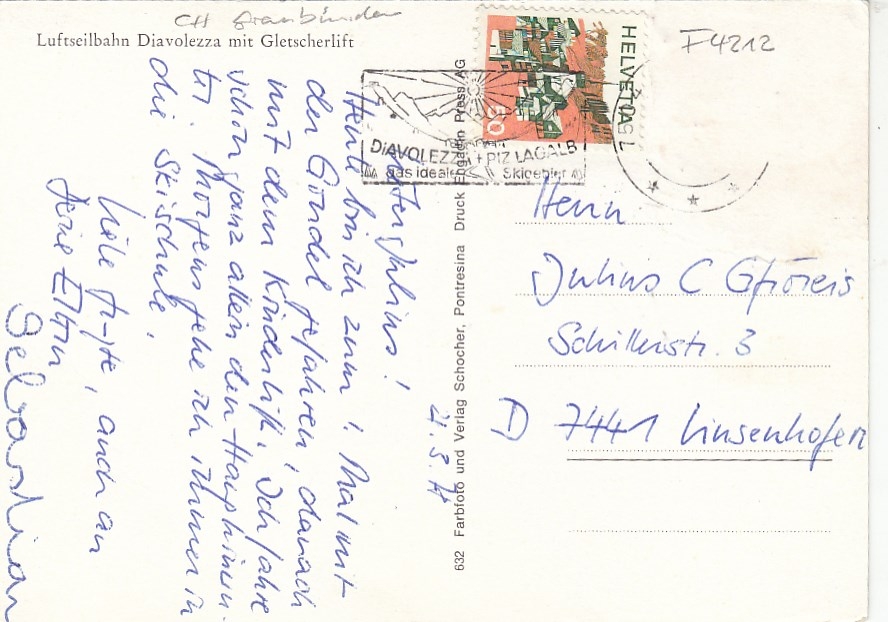 CH Graubünden
Luftseilbahn Diavolezza mit Gletscherlift
F4212
HELVETIA
50
DIAVOLEZZA + PIZ LAGALB
das ideale Skigebiet
21.3.77
Julius!
Heute bin ich zum 1. Mal mit
der Gondel gefahren, danach
mit dem Kinderlift. Ich fahre
schon ganz allein den Hang hinun-
ter. Morgens gehe ich immer in
die Skischule.
Viele Grüße, auch an
Deine Eltern
Sebastian
632 Farbfoto und Verlag Schocher, Pontresina Druck Engadin Press AG
Herrn
Julius C Gfröreis
Schillerstr. 3
D 7441 Linsenhofen